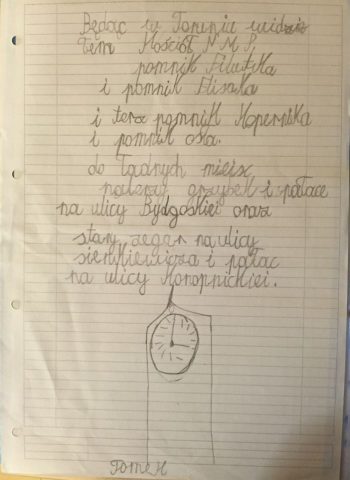 Będąc w Toruniu widzia
tem Kościół N.M.P,
pomnik Filutka
i pomnik Flisaka
i terz pomnik Kopernika
i pomnik osła.
do ładnych miejsc
należy grzybek i pałace
na ulicy Bydgoskiej oraz
stary zegar na ulicy
sienkiewicza i pałac
na ulicy Konopnickiej.
Tomek